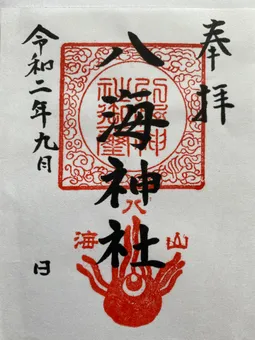 奉拝
八海神社
八
海山
令和二年九月 日